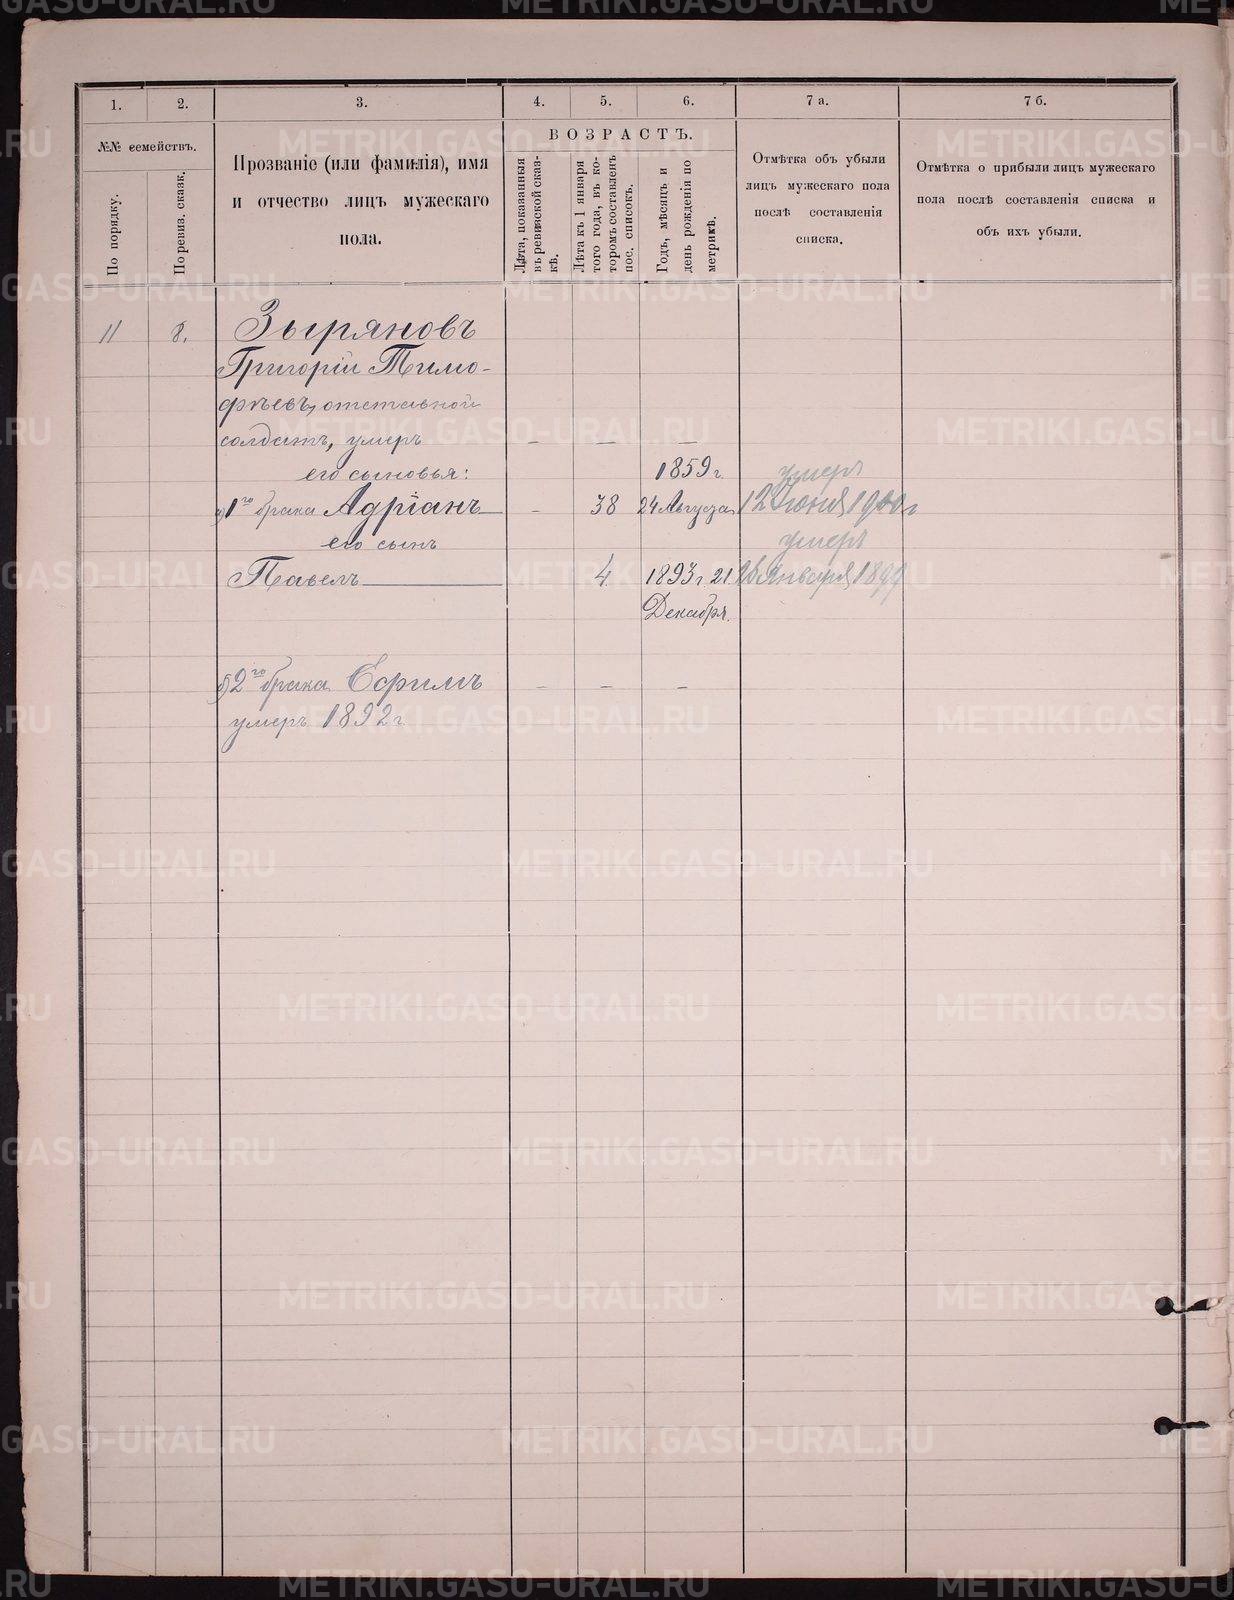 1. 2. 3. 4. 5. 6. 7 а. 7 б.
№№ семействъ.
По порядку.
По ревиз. сказк.
Прозваніе (или фамилія), имя
и отчество лицъ мужескаго
пола.
ВОЗРАСТЪ.
Лѣта, показанныя
въ ревизской сказ-
кѣ.
Лѣта къ 1 января
того года, въ ко-
торомъ составленъ
пос. списокъ.
Годъ, мѣсяцъ и
день рожденія по
метрикѣ.
Отмѣтка объ убыли
лицъ мужескаго пола
послѣ составленія
списка.
Отмѣтка о прибыли лицъ мужескаго
пола послѣ составленія списка и
объ ихъ убыли.
11 8. Зыряновъ
Григорій Тимо-
фѣевъ, отставной
солдатъ, умеръ — — —
его сыновья: 1859 г. умеръ
а) 1го брака Адріанъ — 38 24 Августа 12 Іюня 1900 г
его сынъ умеръ
Павелъ 4 1893 г. 21 26 Января 1899
Декабря.
б) 2го брака Ефимъ — — —
умеръ 1892 г.
METRIKI.GASO-URAL.RU